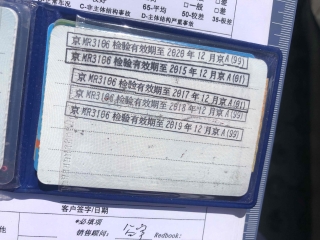 65-平均 □一般
C-非主体结构事故 50-较差 □差
D-主体结构严重事故 35-极差
京MR3106检验有效期至2020年12月京A(99)
京MR3106检验有效期至2015年12月京A(01)
京MR3106检验有效期至2017年12月京A(01)
京MR3106检验有效期至2018年12月京A(99)
京MR3106检验有效期至2019年12月京A(99)
客户签字/日期
*必填项
销售顾问:
Redbook: